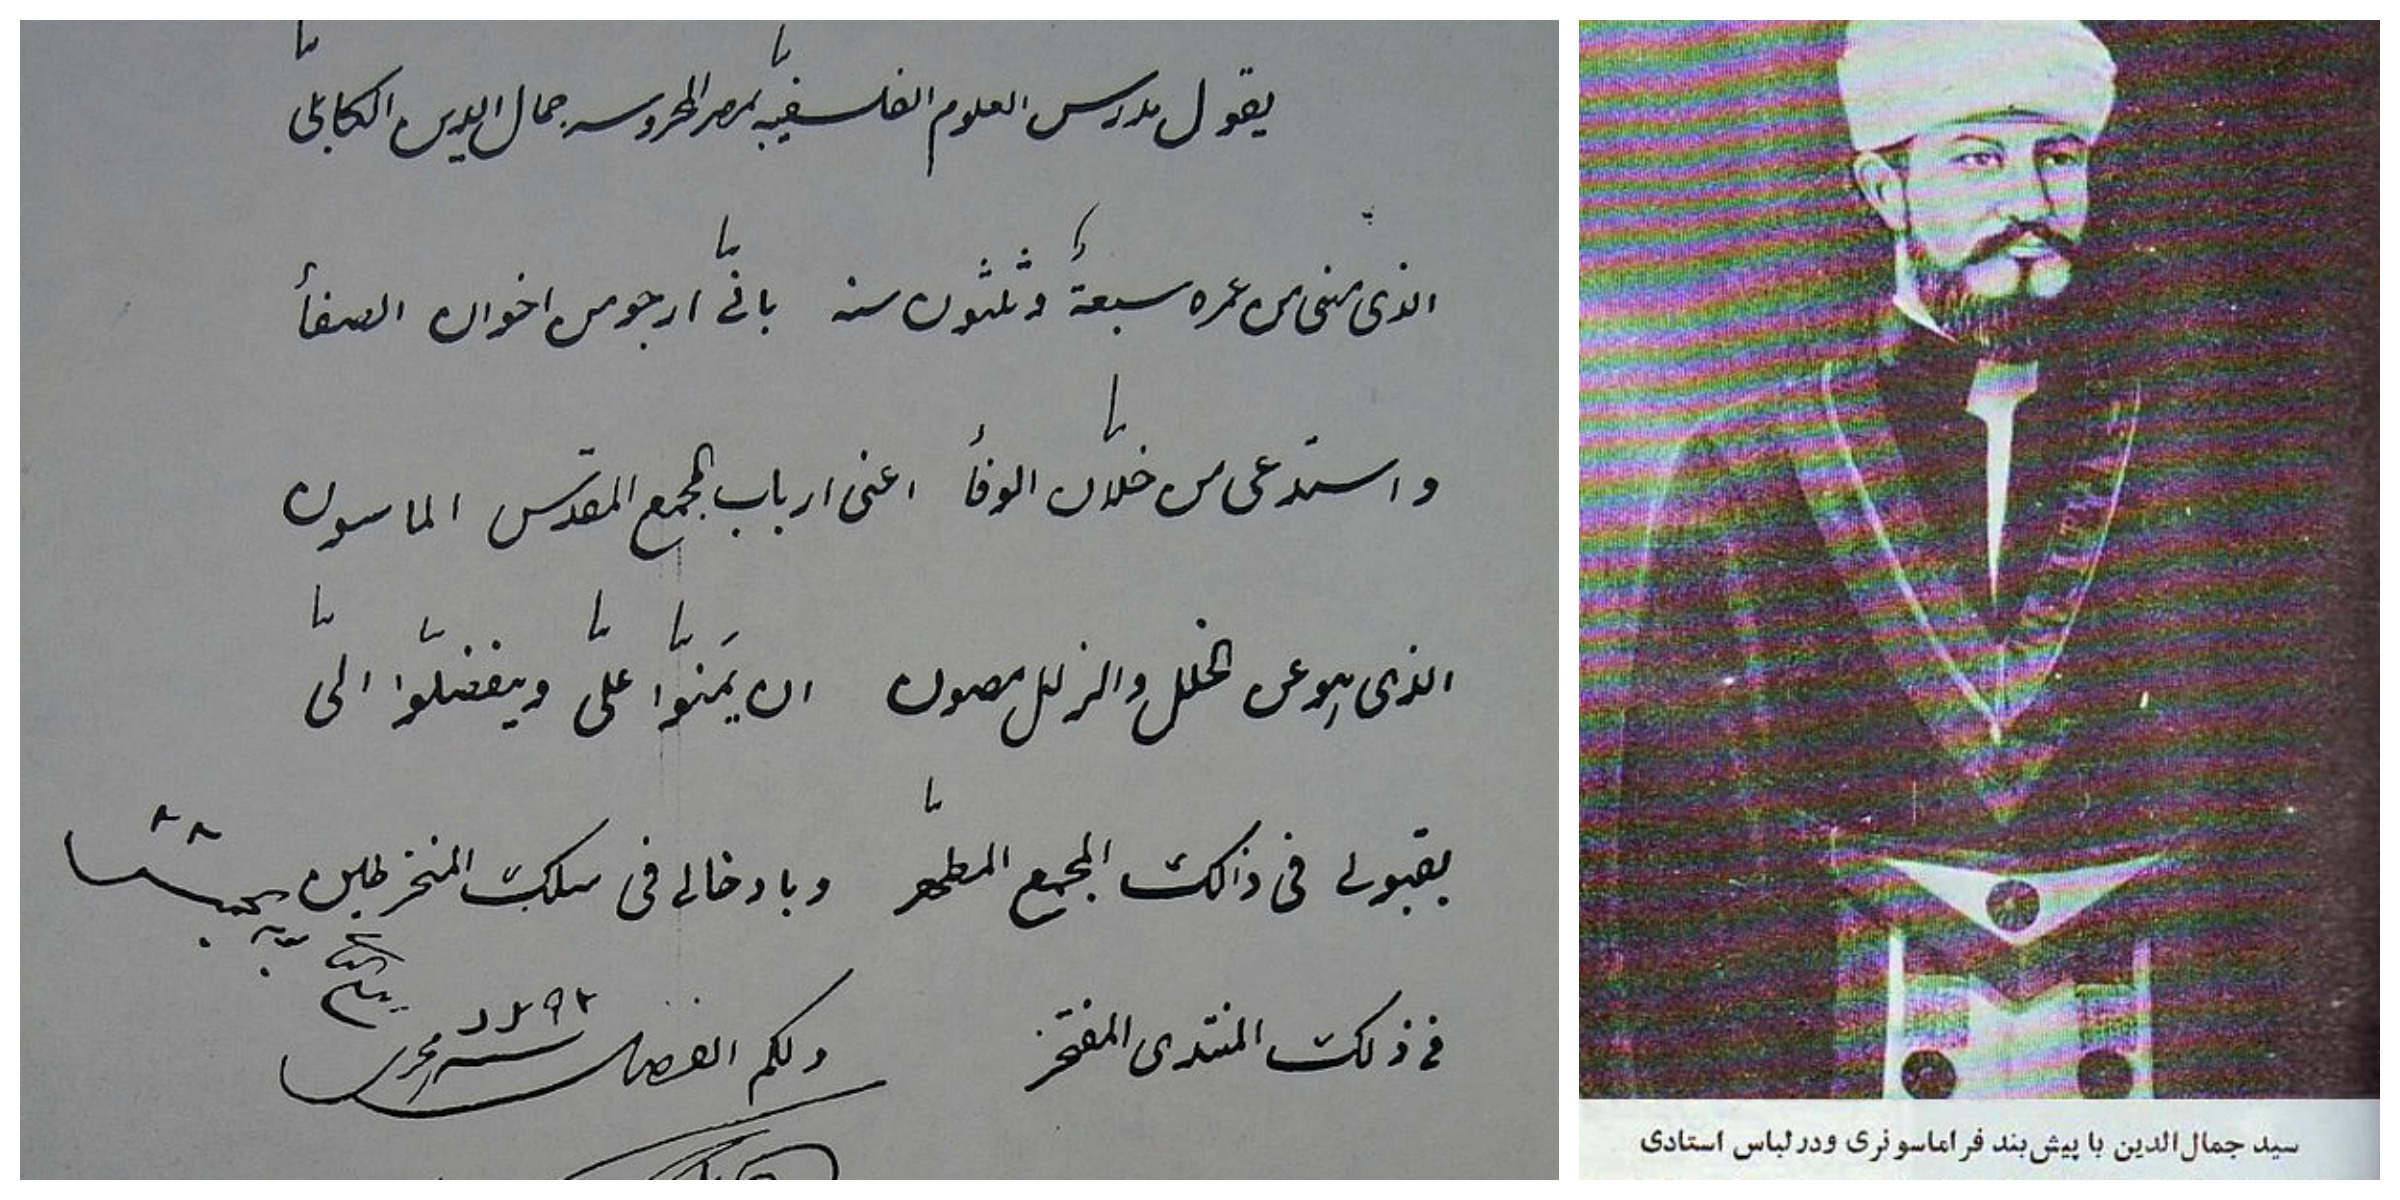 يقول مدرس العلوم الفلسفية بمصر المحروسه جمال الدين الكابلي
الذى مضى من عمره سبعة وثلثون سنه بانّي ارجو من اخوان الصفأ
واستدعى من خلّان الوفأ اعنى ارباب المجمع المقدّس الماسون
الذى هو عن الخلل والزلل مصون ان يَمنّوا علىّ ويتفضّلوا الىّ
بقبولى فى ذالك المجمع المطهّر وبادخالى فى سلك المنخرطين
فى ذلك المنتدى المفتخر ولكم الفضل
سید جمال‌الدین با پیش‌بند فراماسونری ودرلباس استادی